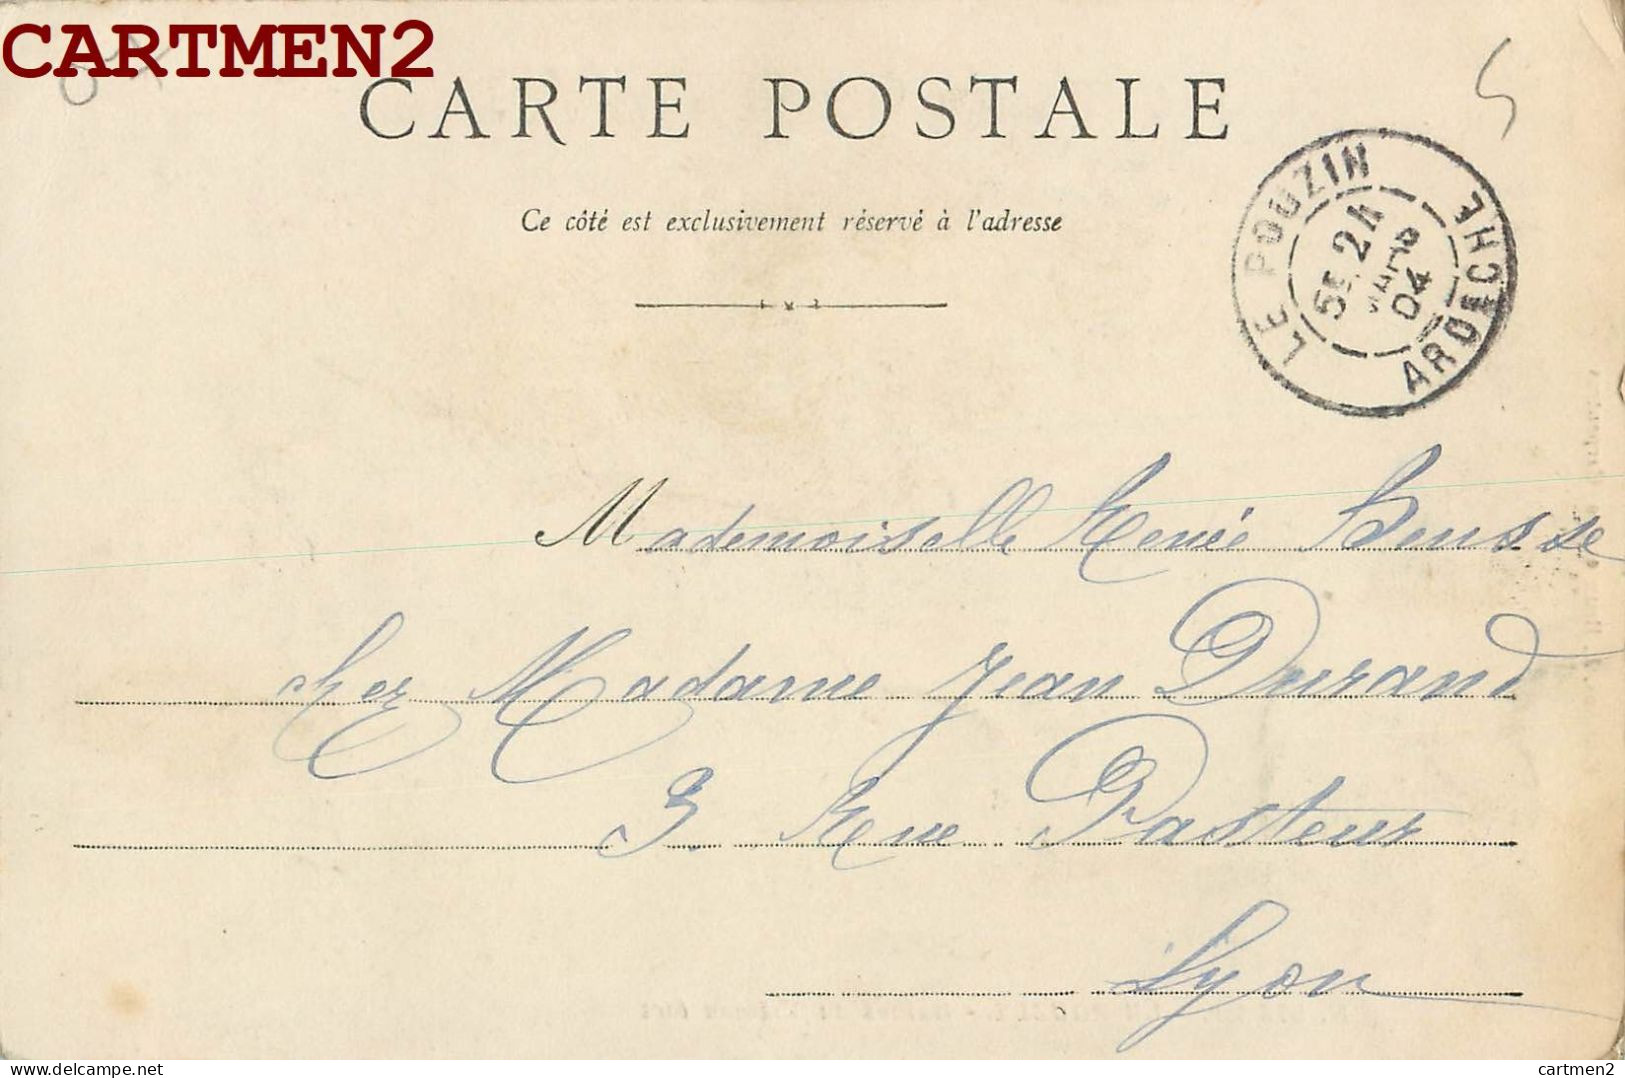 CARTMEN2
07
5
CARTE POSTALE
Ce côté est exclusivement réservé à l'adresse
LE POUZIN
04
ARDECHE
Mademoiselle Renée
chez Madame Jean Durand
3. Rue Pasteur
Lyon
delcampe.net
cartmen2